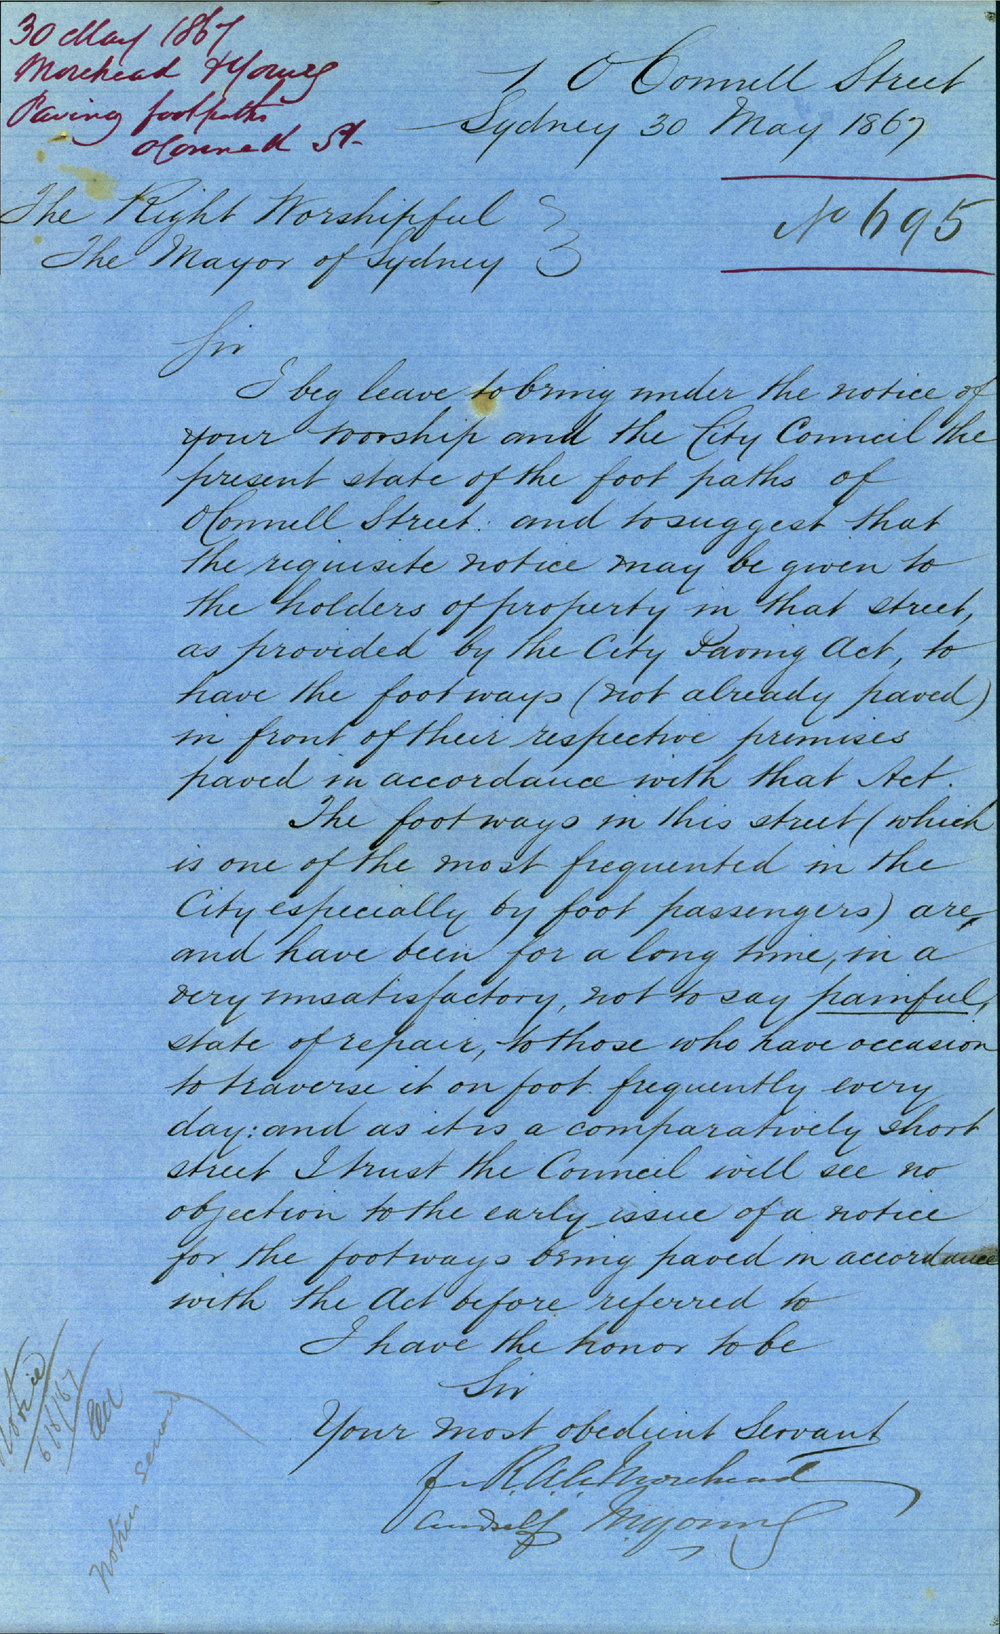 30 May 1867
Morehead & Young
Paving footpaths
OConnell St.
1 O'Connell Street
Sydney 30 May 1867
No 695
The Right Worshipful
The Mayor of Sydney
Sir
I beg leave to bring under the notice of
your Worship and the City Council the
present state of the foot paths of
OConnell Street: and to suggest that
the requisite notice may be given to
the holders of property in that street,
as provided by the City Paving Act, to
have the footways (not already paved)
in front of their respective premises
paved in accordance with that Act.
The footways in this street (which
is one of the most frequented in the
City especially by foot passengers) are,
and have been for a long time, in a
very unsatisfactory, not to say painful,
state of repair, to those who have occasion
to traverse it on foot frequently every
day: and as it is a comparatively short
street I trust the Council will see no
objection to the early issue of a notice
for the footways being paved in accordance
with the Act before referred to
I have the honor to be
Sir
Your most obedient Servant
R.A.A. Morehead
and self M Young
Notice
Notices